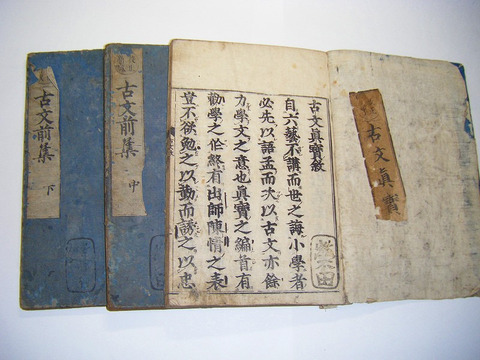 古文眞寶
古文眞寶敘
自六藝不講而世之誨小學者
必先以語孟而次以古文亦餘
力學文之意也眞寶之編首有
勸學之作終有出師陳情之表
豈不欲勉之以勤而誘之以忠
古文前集 中
古文前集 下